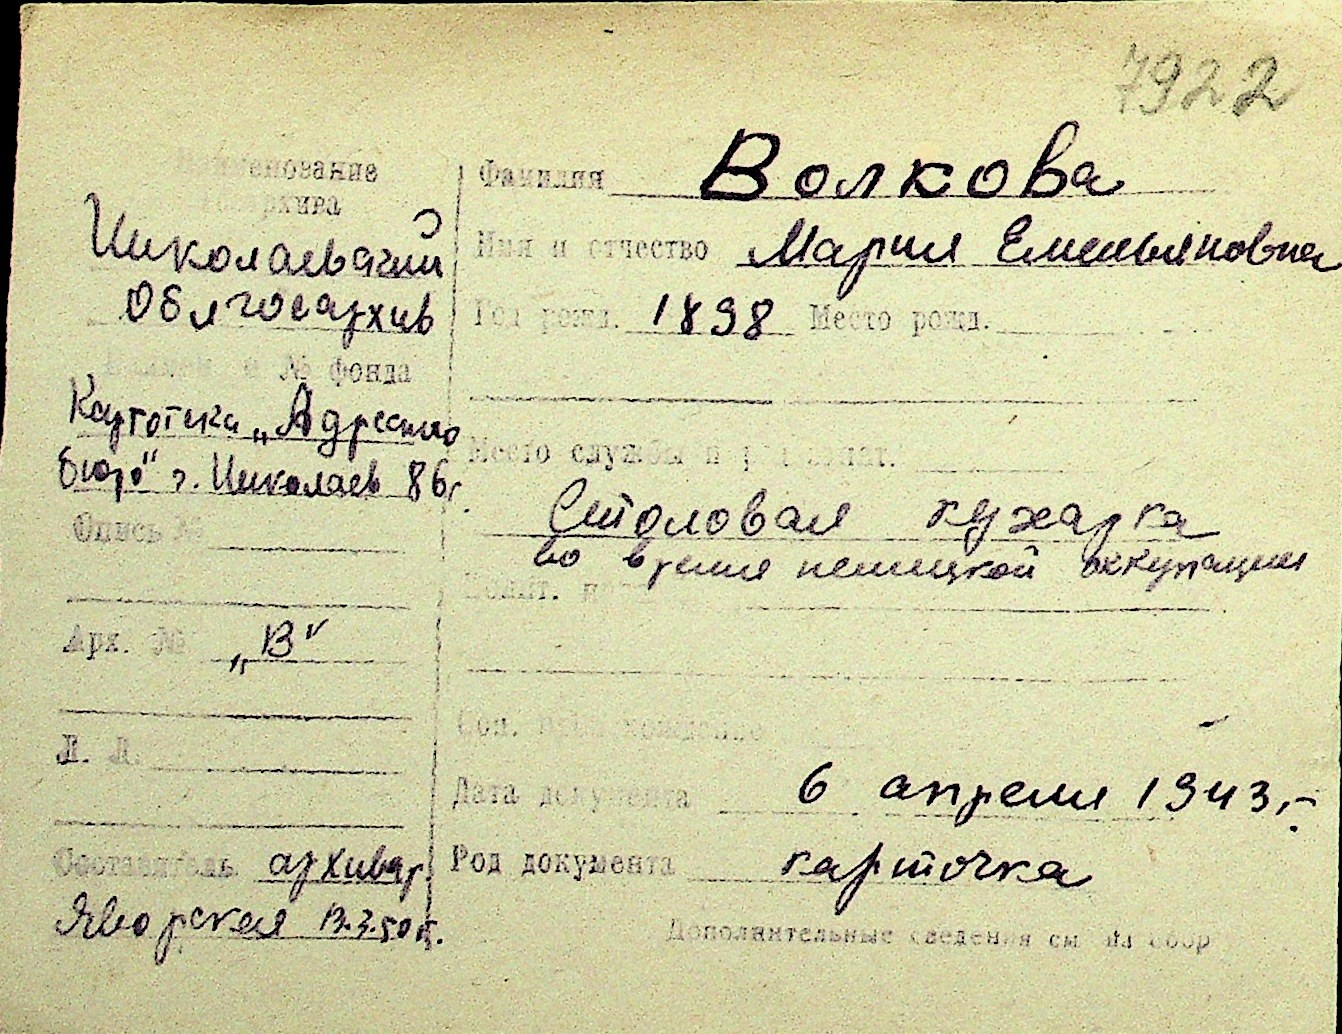 7922
Наименование
госархива
Николаевский
Облгосархив
№ фонда
Картотека „Адресного
бюро" г. Николаев 86г.
Опись №
Арх. № „В"
Л. Л.
Составитель архивар.
Яворская 13.3.50г.
Фамилия Волкова
Имя и отчество Мария Емельяновна
Год рожд. 1898 Место рожд.
Место службы и
Столовая кухарка
во время немецкой оккупации
Полит.
Соц. происхождение
Дата документа 6 апреля 1943 г.
Род документа карточка
Дополнительные сведения см на обор